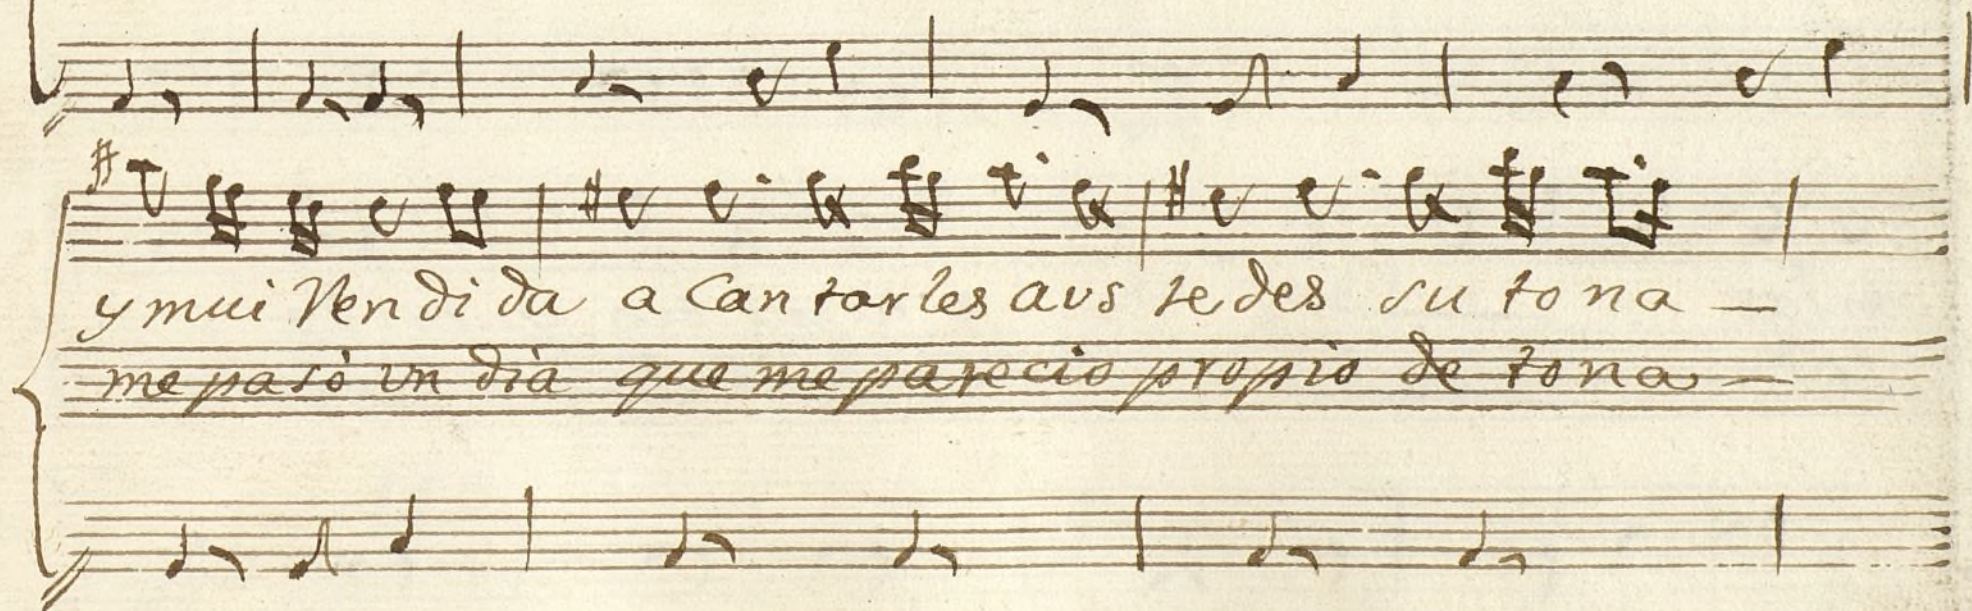 y mui Ren di da a Can tar les a vs te des su to na —
me pa só vn dia que me parecio propio de to na —